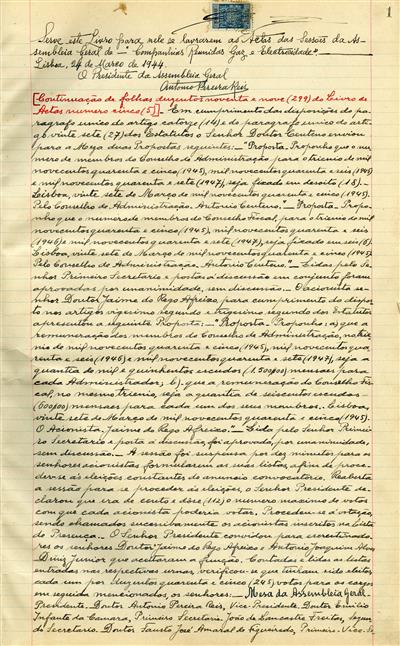 1
Serve este Livro para nele se lavrarem as Actas das Sessões da As-
sembleia Geral de - "Companhias Reunidas Gaz e Electricidade" -
Lisboa, 24 de Março de 1944.
O Presidente da Assembleia Geral
Antonio Pereira Reis
[Continuação de folhas duzentas noventa e nove (299) do Livro de
Actas numero cinco (5)]. - Em cumprimento das disposições do pa-
ragrafo unico do artigo catorze (14) e do paragrafo unico do arti-
go vinte sete (27) dos Estatutos o Senhor Doutor Centeno enviou
para a Mesa duas Propostas seguintes: - "Proposta. Proponho que o nu-
mero de membros do Conselho de Administração para o trienio de mil
novecentos quarenta e cinco (1945), mil novecentos quarenta e seis (1946)
e mil novecentos quarenta e sete (1947), seja fixado em dezoito (18). -
Lisboa, vinte sete de Março de mil novecentos quarenta e cinco (1945).
Pelo Conselho de Administração. Antonio Centeno." - "Proposta. Propo-
nho que o numero de membros do Conselho Fiscal, para o trienio de mil
novecentos quarenta e cinco (1945), mil novecentos quarenta e seis
(1946) e mil novecentos quarenta e sete (1947), seja fixado em seis (6).
Lisboa, vinte sete de Março de mil novecentos quarenta e cinco (1945).
Pelo Conselho de Administração. Antonio Centeno." - Lidas pelo Se-
nhor Primeiro Secretario e postas á discussão em conjunto foram
aprovadas por unanimidade, sem discussão. - O accionista Se-
nhor Doutor Jaime do Rego Afreixo, para cumprimento do dispos-
to nos artigos vigesimo segundo e trigesimo segundo dos Estatutos
apresentou a seguinte Proposta: - "Proposta. Proponho: a) que a
remuneração dos membros do Conselho de Administração, no trie-
nio de mil novecentos quarenta e cinco (1945), mil novecentos qua-
renta e seis (1946) e mil novecentos quarenta e sete (1947), seja a
quantia de mil e quinhentos escudos (1.500$00) mensaes para
cada Administrador; b). que a remuneração do Conselho Fis-
cal, no mesmo trienio, seja a quantia de seiscentos escudos -
(600$00) mensaes para cada um dos seus membros. Lisboa,
vinte sete de Março de mil novecentos quarenta e cinco (1945).
O Accionista. Jaime do Rego Afreixo." - Lida pelo Senhor Primei-
ro Secretario e posta á discussão, foi aprovada, por unanimidade,
sem discussão. - A sessão foi suspensa por dez minutos para os
senhores accionistas formularem as suas listas, afim de proce-
der-se ás eleições constantes do anuncio convocatorio. Reaberta
a sessão para se proceder ás eleições, o Senhor Presidente de-
clarou que era de cento e doze (112) o numero maximo de votos
com que cada accionista poderia votar. Procedeu-se á votação,
sendo chamados sucessivamente os accionistas inscritos na lista
de Presença. - O Senhor Presidente convidou para escrutinado-
res os senhores Doutor Jaime do Rego Afreixo e Antonio Joaquim Alves
Diniz Junior que aceitaram a função. Contadas e lidas as listas
entradas nas respectivas urnas, verificou-se que tinham sido eleitos
cada um por duzentos quarenta e cinco (245) votos para os cargos
em seguida mencionados, os senhores: - Mesa da Assembleia Geral -
Presidente. Doutor Antonio Pereira Reis, Vice-Presidente. Doutor Emilio
Infante da Camara, Primeiro Secretario. João de Lancastre Freitas, Segun-
do Secretario. Doutor Fausto José Amaral de Figueiredo, Primeiro-Vice-Se-